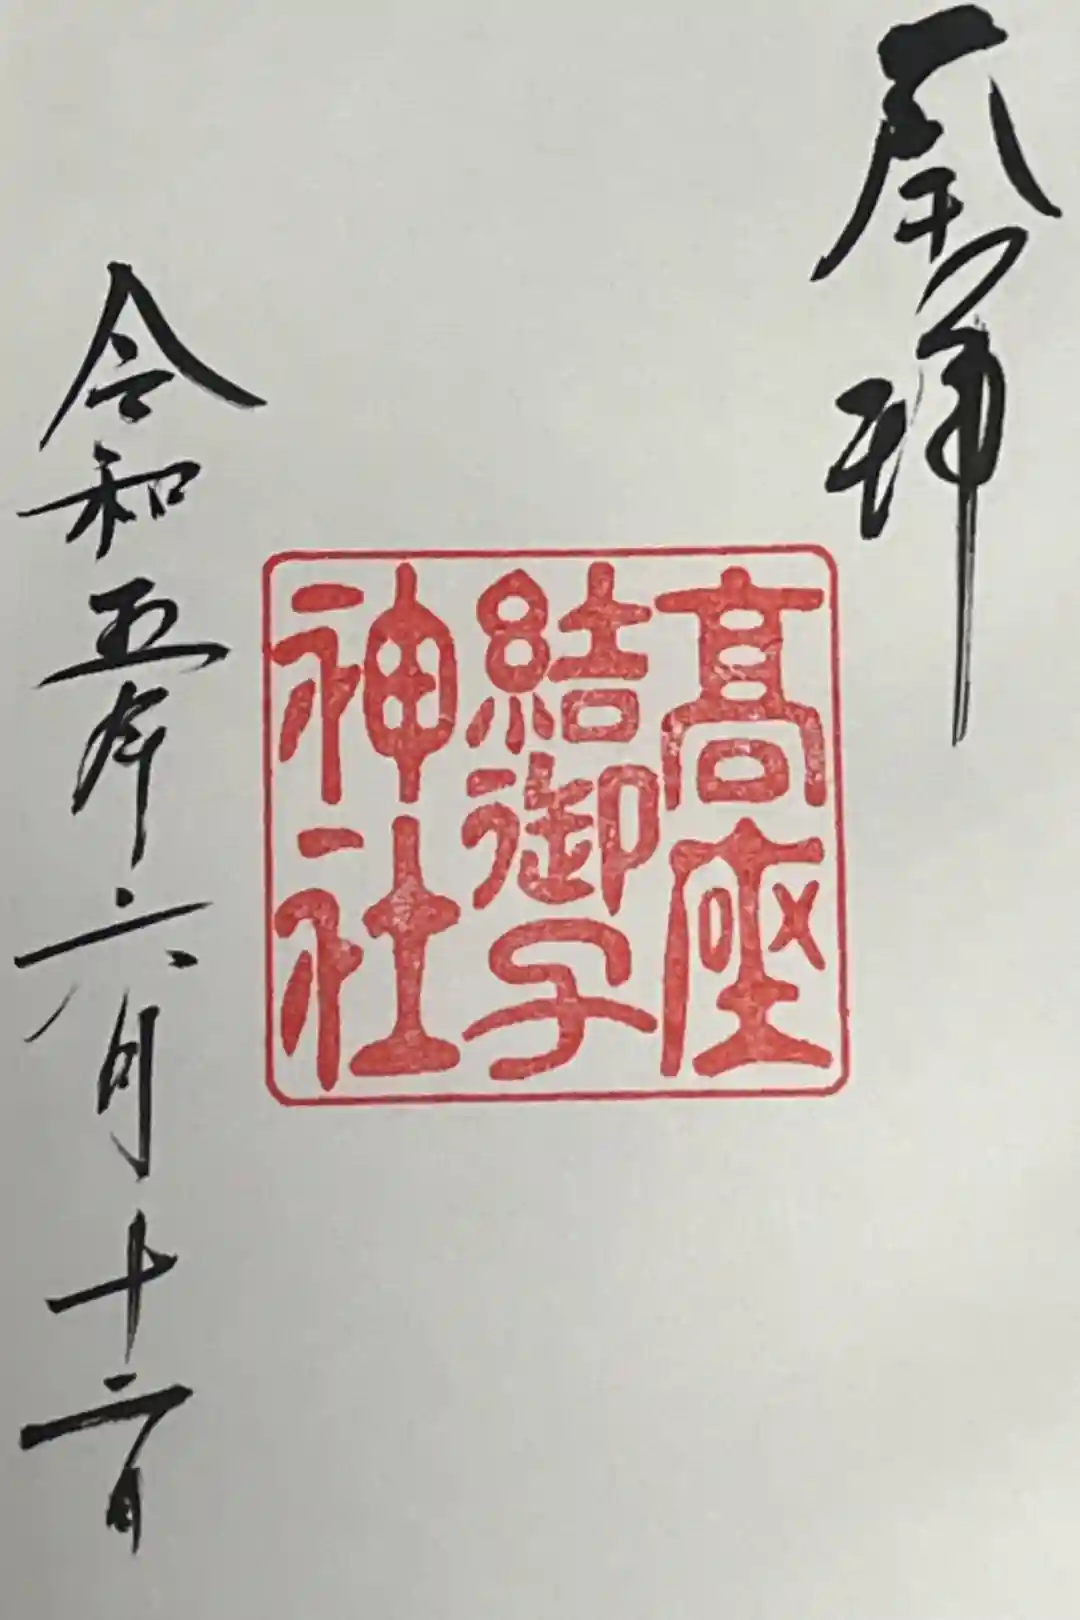 奉拝
高座
結御子
神社
令和五年六月十六日